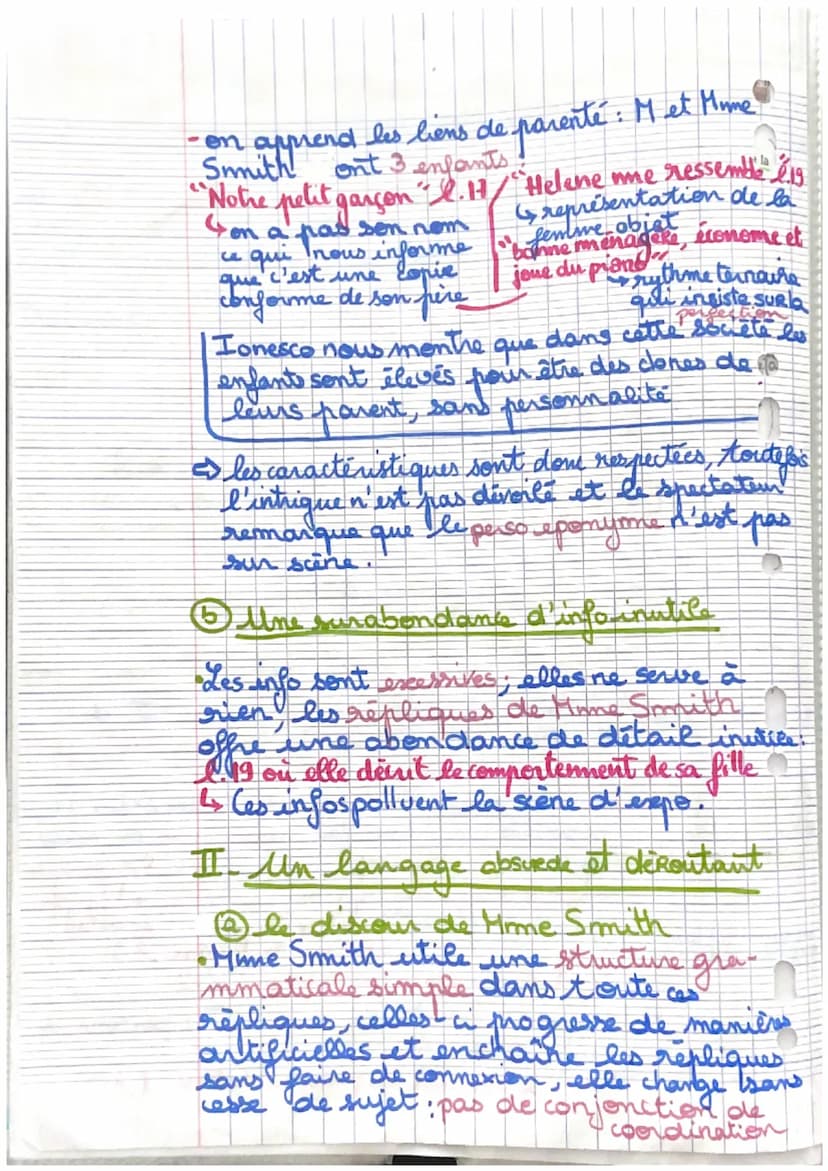 - on apprend les liens de parenté : M et Mme
Smith ont 3 enfants :
"Notre petit garçon" l.17
↳ on a pas son nom
ce qui nous informe
que c'est une copie
conforme de son père
"Helene me ressemble" l.19
↳ représentation de la
femme objet
"bonne ménagère, économe et
joue du piano"
→ rythme ternaire
qui insiste sur la
perfection
Ionesco nous montre que dans cette société les
enfants sont élevés pour être des clones de
leurs parent, sans personnalité
⇨ les caractéristiques sont donc respectées, toutefois
l'intrigue n'est pas dévoilé et le spectateur
remarque que le perso eponyme n'est pas
sur scène.
b Une surabondance d'info inutile
• Les info sont excessives ; elles ne serve à
rien, les répliques de Mme Smith
offre une abondance de détail inutile :
l.19 où elle décrit le comportement de sa fille
↳ Ces infos polluent la scène d'expo.
II - Un langage absurde et déroutant
a le discour de Mme Smith
• Mme Smith utile une structure gra-
mmaticale simple dans toute ces
répliques, celles-ci progresse de manières
artificielles et enchaîne les répliques
sans faire de connexion, elle change sans
cesse de sujet : pas de conjonction de
coordination